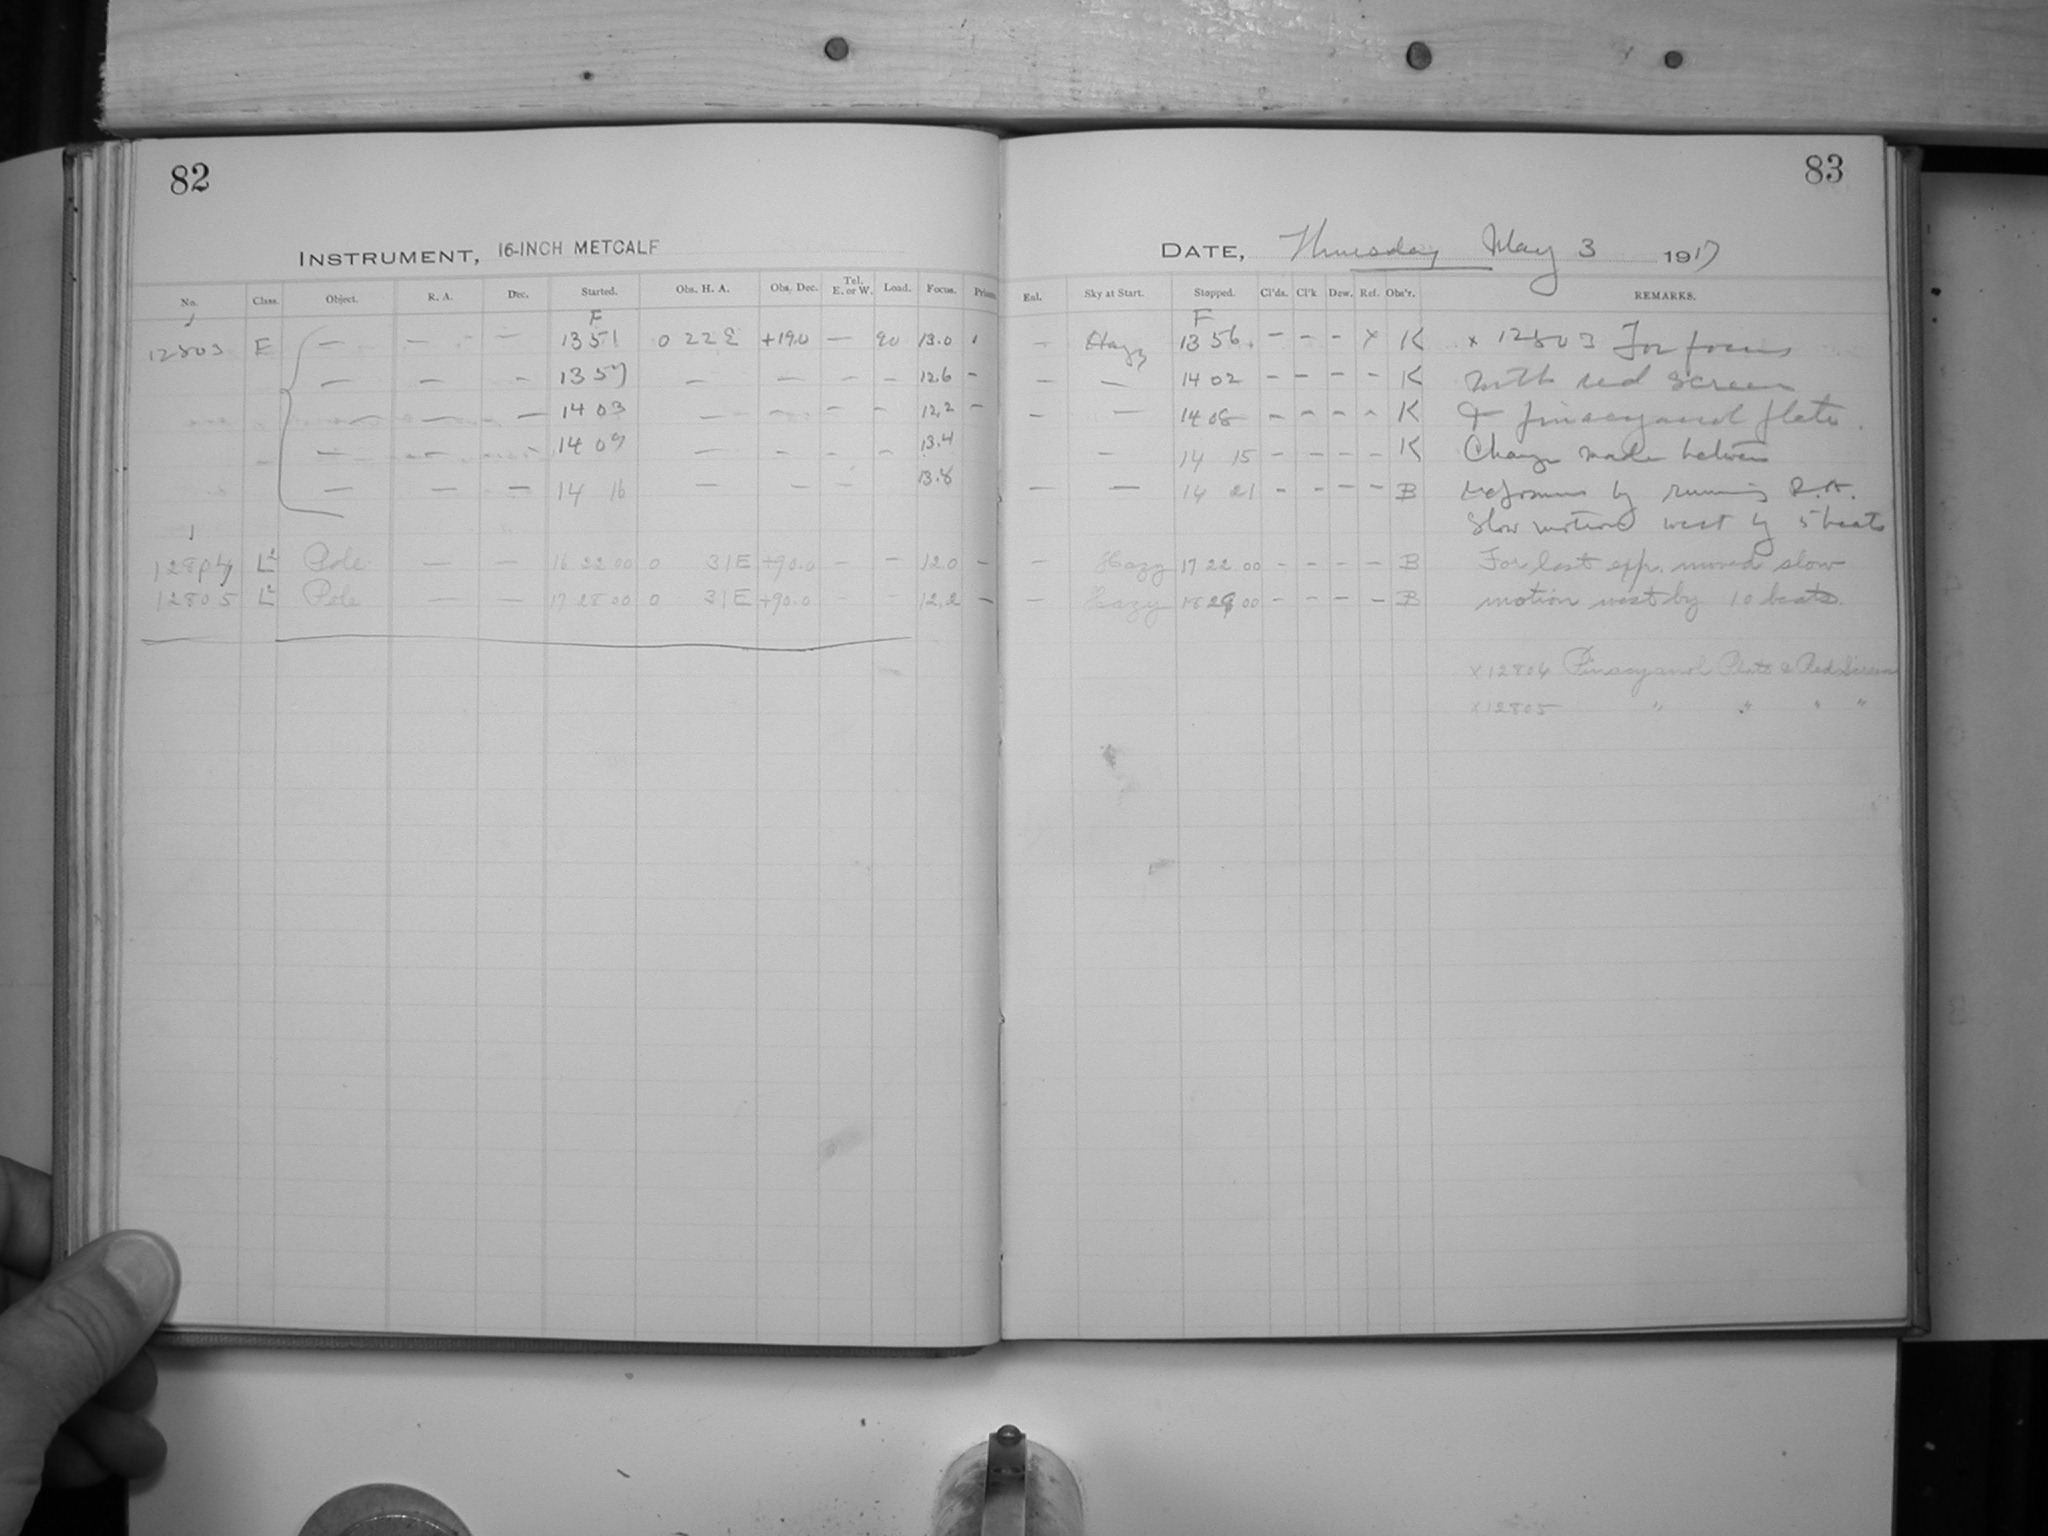 82
INSTRUMENT, 16-INCH METCALF
No. Class. Object. R. A. Dec. Started. Obs. H. A. Obs. Dec. Tel. E. or W. Load. Focus. Prism.
F
12803 E — — — 13 51 0 22 E +19.0 — 90 13.0
— — — 13 57 — — — — 12.6 —
— — — 14 03 — — — — 12.2 —
— — — 14 09 — — — — 13.4
— — — 14 16 — — — 13.8
12804 L² Pole — — 16 22 00 0 31 E +90.0 — — 12.0 —
12805 L² Pole — — 17 28 00 0 31 E +90.0 — — 12.2 —
83
DATE, Thursday May 3 1917
Enl. Sky at Start. Stopped. Cl'ds. Cl'k Dew. Ref. Obs'r. REMARKS.
F
— Hazy 13 56. — — — x K x 12803 For focus
— — 14 02 — — — — K with red screen
— — 14 08 — — — — K & pinacyanol plate.
— 14 15 — — — — K Change made between
— — 14 21 — — — — B exposures by running R.A.
Slow motion west by 5 beats
— Hazy 17 22 00 — — — — B For last exp. moved slow
— Hazy 18 28 00 — — — — B motion west by 10 beats.
x12804 Pinacyanol Plate & Red Screen
x12805 " " " "